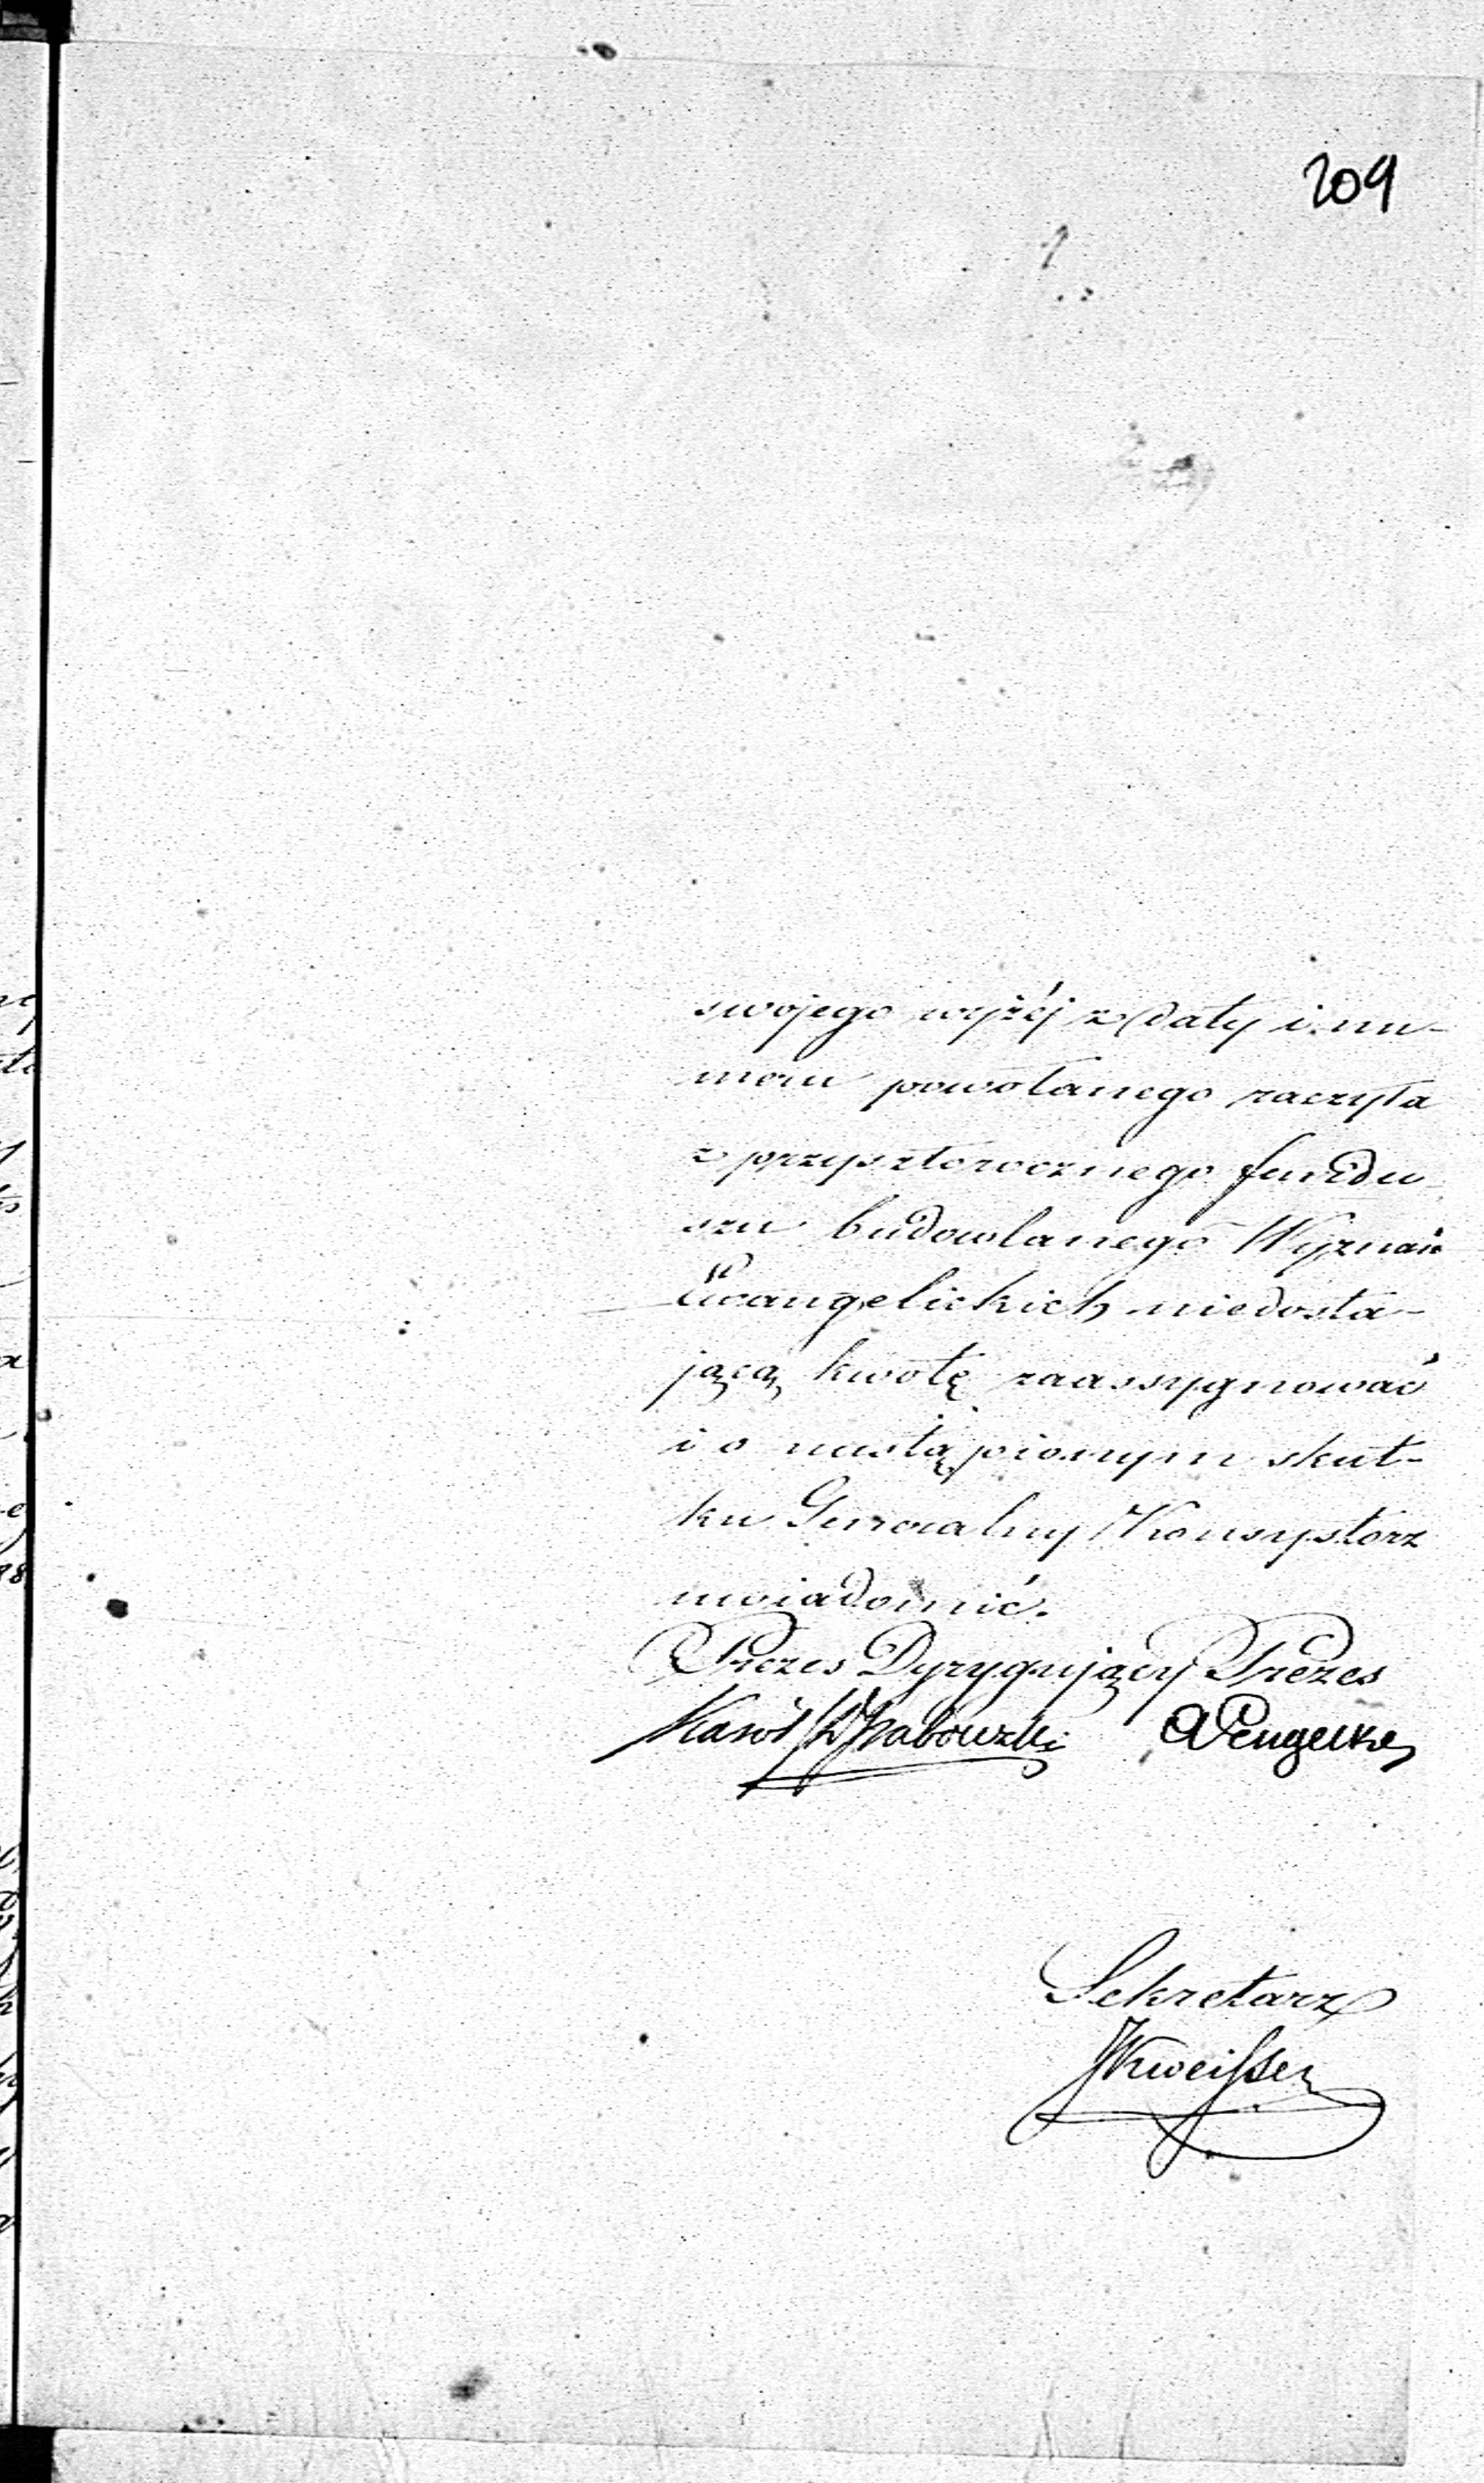 209
swojego wyżéj z daty i nu-
meru powołanego raczyła
z przyszłorocznego fundu-
szu budowlanego Wyznań
Ewangelickich niedosta-
jącą kwotę zaassygnować
i o nastąpionym skut-
ku Generalny Konsystorz
uwiadomić.
Prezes Dyrygujący Prezes
Karol
Sekretarz